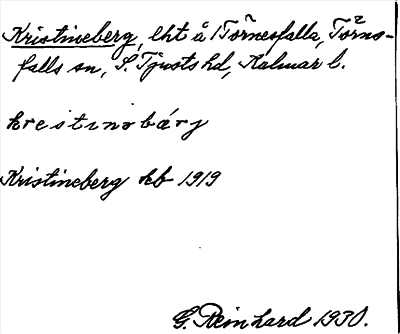 Kristineberg, lht å Törnesfalla, Törns-
falls sn, S. Tjusts hd, Kalmar l.
krestinəbárj
Kristineberg kb 1919
G. Reinhard 1930.